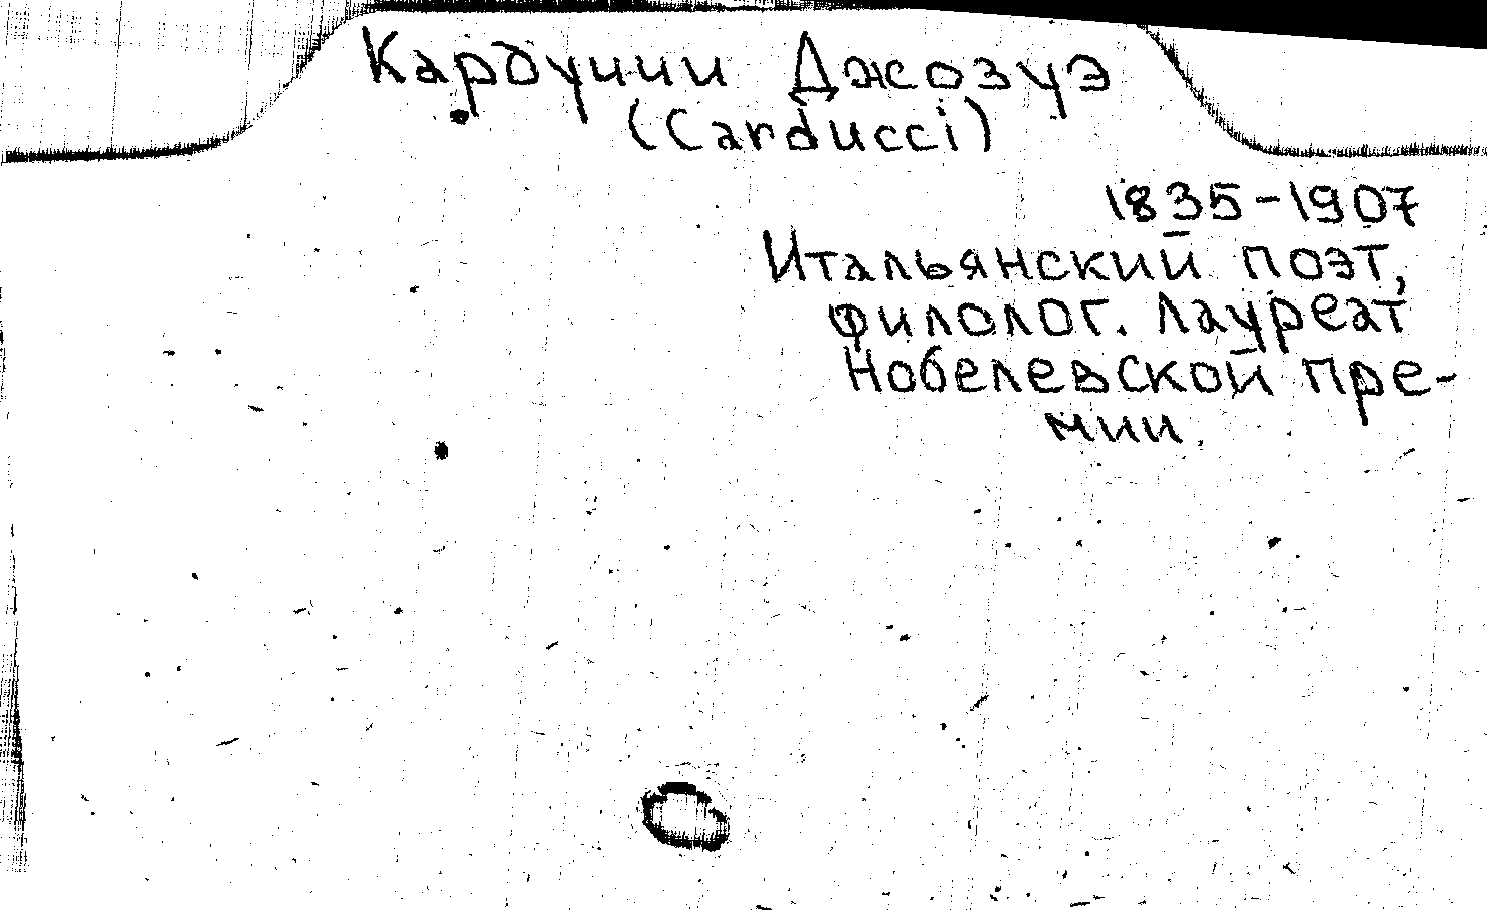 Кардуччи Джозуэ
(Carducci)
1835-1907
Итальянский поэт,
филолог. Лауреат
Нобелевской пре-
мии.